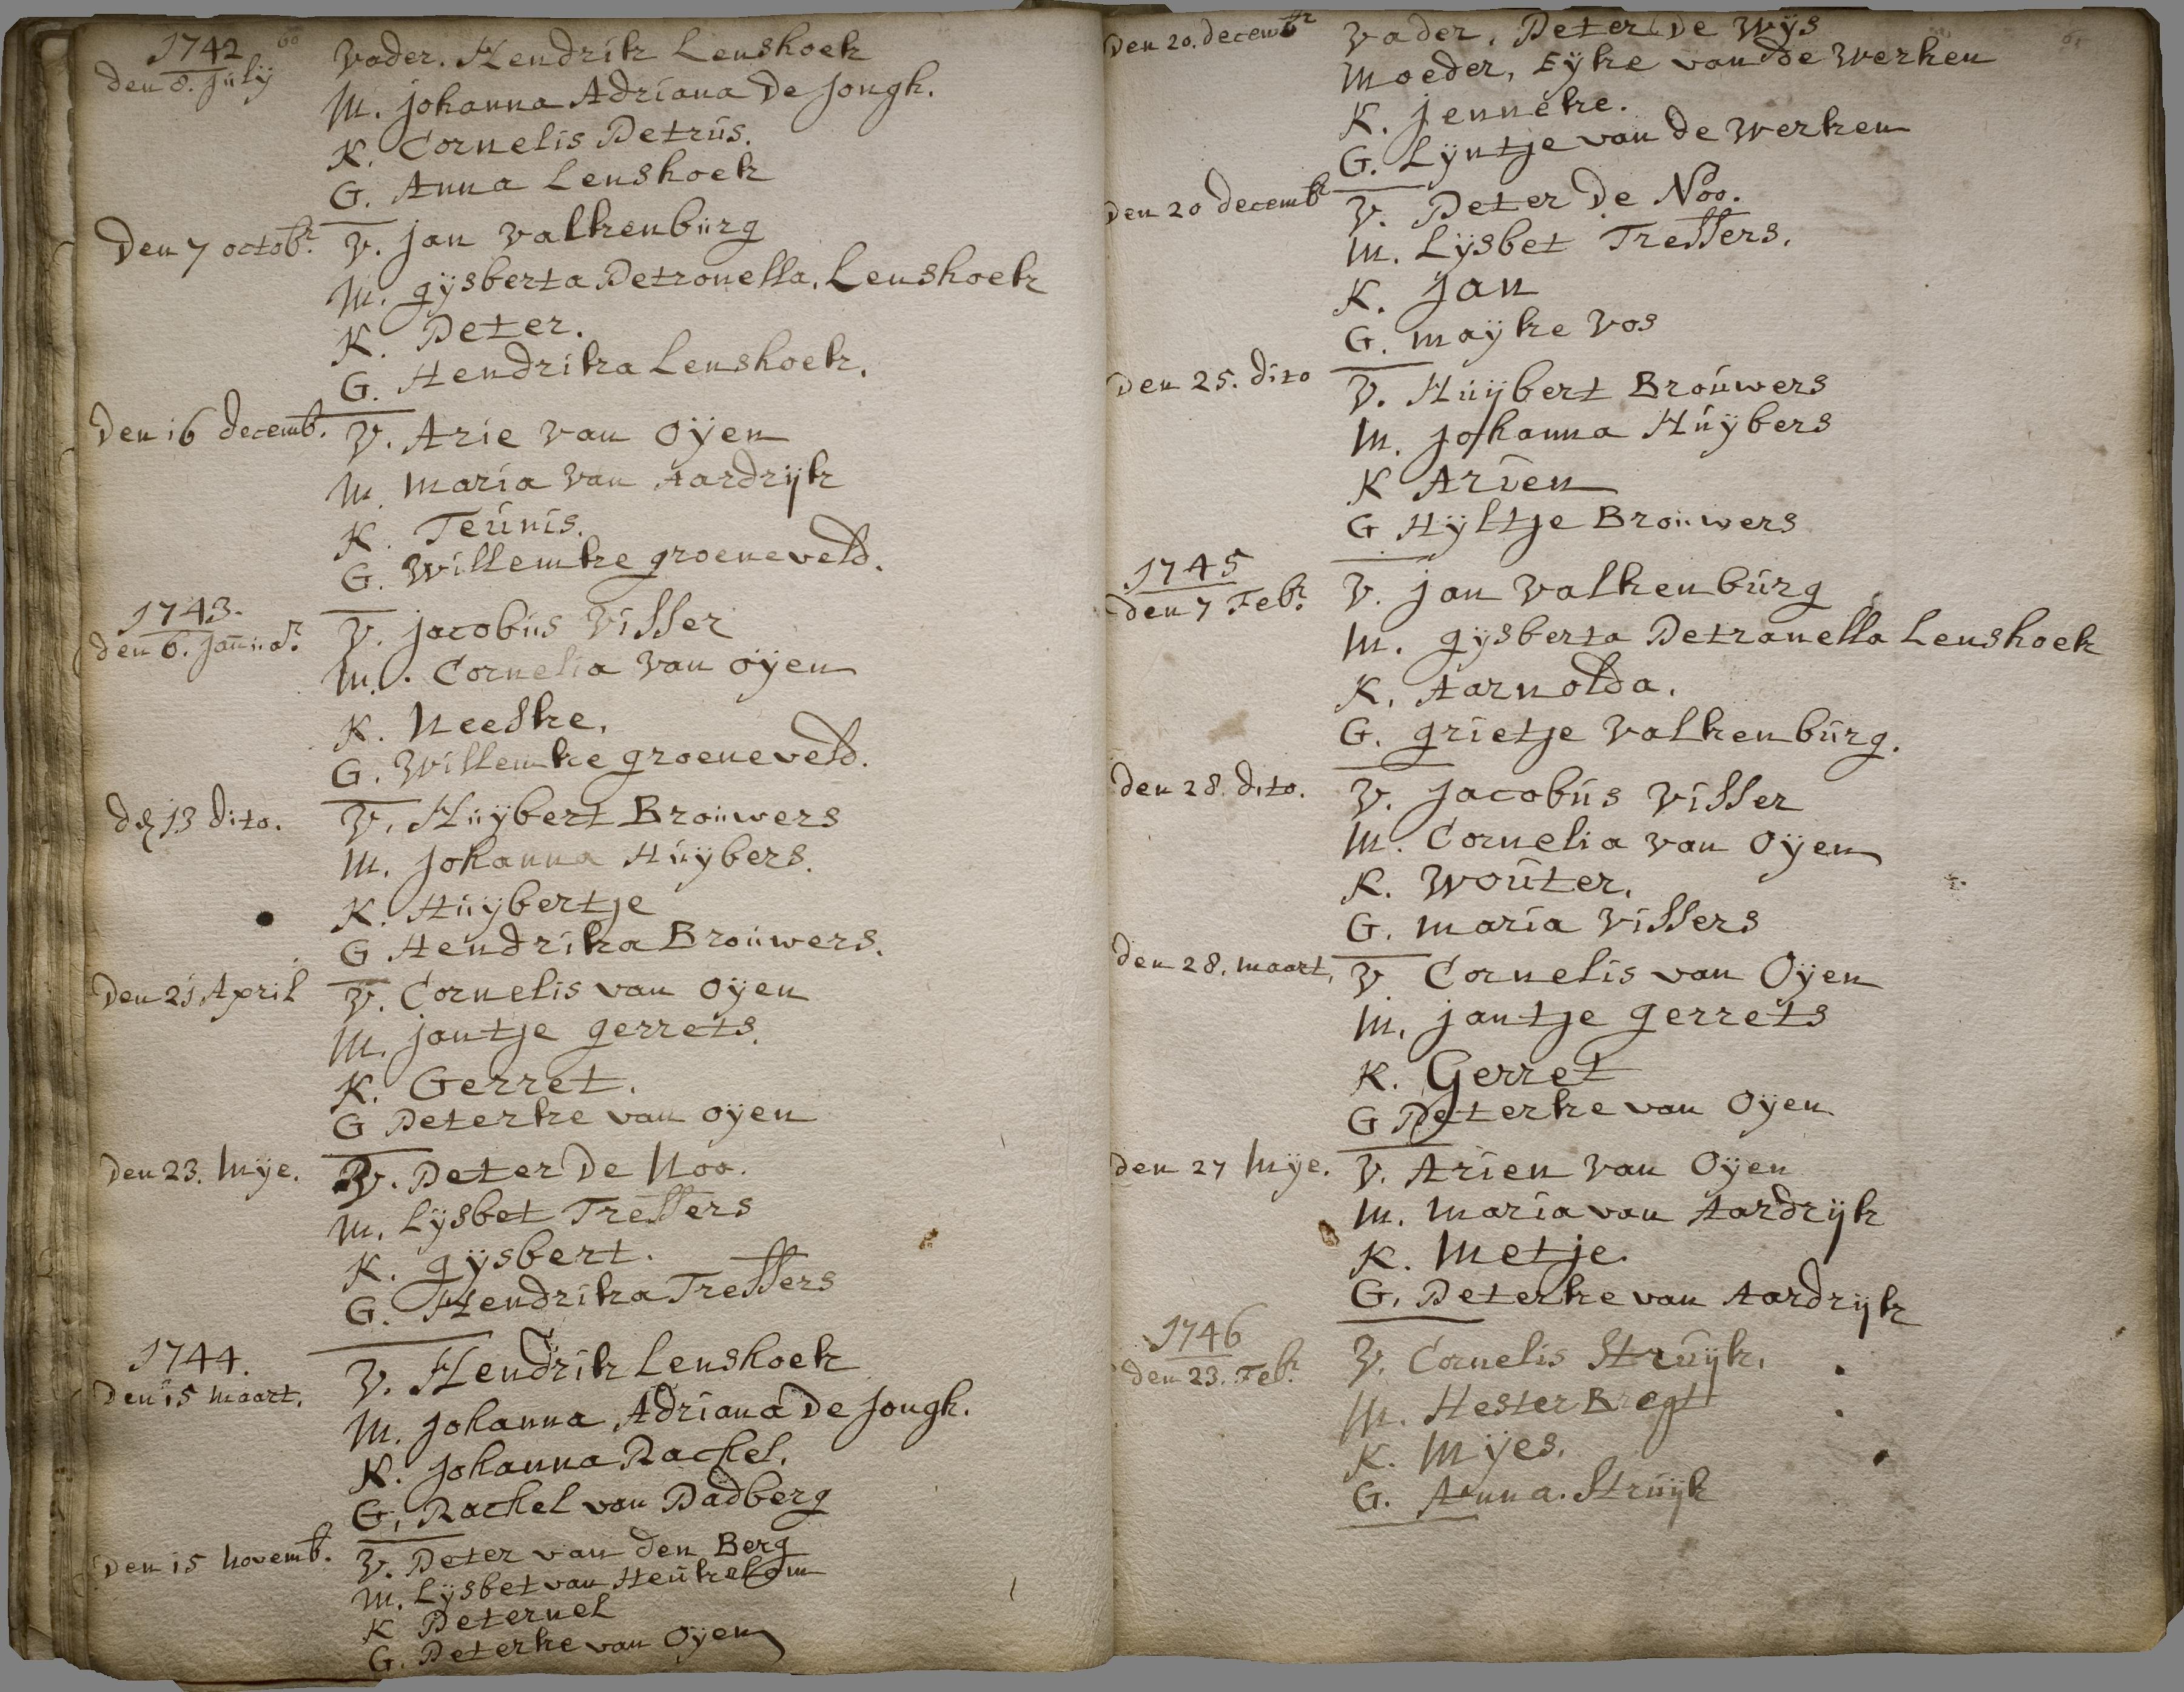 1742 60
den 8. Júlÿ Vader. Hendrik Lenshoek
M. Johanna Adriana De Jongh.
K. Cornelis Petrús.
G. Anna Lenshoek
Den 7 octobr. V. Jan Valkenbúrg
M. gÿsberta Petronella. Lenshoek
K. Peter.
G. Hendrika Lenshoek.
Den 16 decemb. V. Arie van Oÿen
M. Maria van Aardrÿk
K. Teúnis.
G. Willemke groeneveld.
1743.
den 6. Janúar. V. Jacobús Visser
M. Cornelia van oÿen
K. Neeske.
G. Willemke groeneveld.
den 13 dito. V. Húÿbert Broúwers
M. Johanna Húÿbers.
K. Húÿbertje
G Hendrika Broúwers.
Den 21 April V. Cornelis van Oÿen
M. Jantje gerrets.
K. Gerret.
G Peterke van oÿen
Den 23. Mÿe. V. Peter De Noo.
M. Lÿsbet Treffers
K. gÿsbert.
G. Hendrika Treffers
1744.
Den 15 maart. V. Hendrik Lenshoek
M. Johanna Adriana De Jongh.
K. Johanna Rachel.
G. Rachel van Dadberg
Den 15 Novemb. V. Peter van den Berg
M. Lÿsbet van Heúkelom
K Peternel
G. Peterke van Oÿen
Den 20. decembr Vader. Peter De Wÿs
Moeder, Eÿke van de Werken
K. Jenneke.
G. Lÿntje van de Werken
Den 20 decembr V. Peter De Noo.
M. Lÿsbet Treffers.
K. Jan
G. maÿke Vos
Den 25. dito V. Húÿbert Broúwers
M. Johanna Húÿbers
K Arien
G Hÿltje Broúwers
1745
den 7 Febr. V. Jan Valkenbúrg
M. gÿsberta Petronella Lenshoek
K. Aarnolda.
G. grietje Valkenbúrg.
Den 28. dito. V. Jacobús Visser
M. Cornelia van Oÿen
K. Woúter.
G. maria Vissers
Den 28. maart, V Cornelis van Oÿen
M. Jantje gerrets
K. Gerret
G Peterke van Oÿen
Den 27 Mÿe. V. Arien van Oÿen
M. Maria van Aardrÿk
K. Metje.
G. Peterke van Aardrÿk
1746
den 23. Febr. V. Cornelis Strúÿk.
M. Hester Bregt
K. Mÿes.
G. Anna. Strúÿk